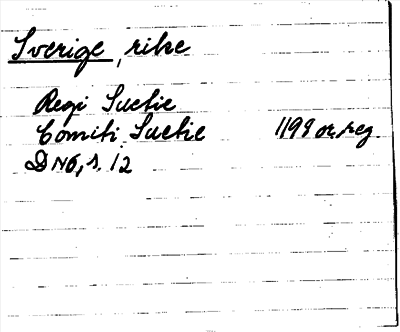 Sverige, rike
Regi Suetie
Comiti Suetie 1199 or. reg.
DN6, s. 12